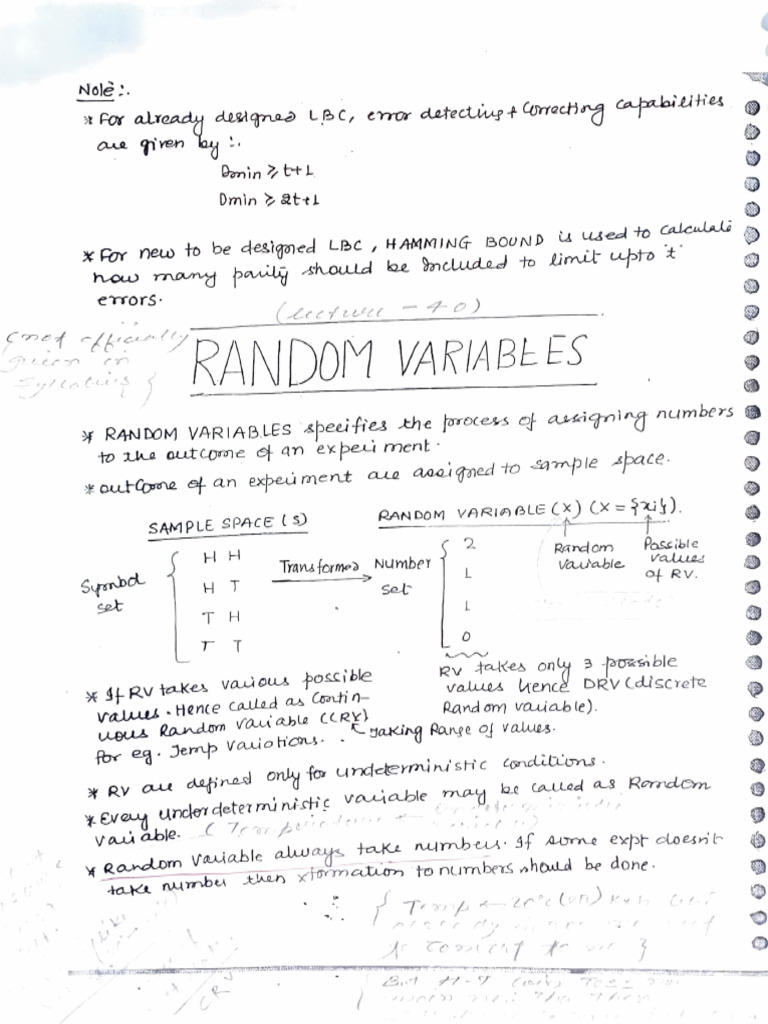 Note:-
* For already designed LBC, error detecting + Correcting capabilities
are given by :-
Dmin ≥ t+1
Dmin ≥ 2t+1
* For new to be designed LBC, HAMMING BOUND is used to calculate
how many parity should be Included to limit upto 't'
errors.
(lecture - 40)
(not officially
given in
RANDOM VARIABLES
* RANDOM VARIABLES specifies the process of assigning numbers
to the outcome of an experiment.
* outcome of an experiment are assigned to sample space.
SAMPLE SPACE (S)
RANDOM VARIABLE (X) (X = {xi}).
Symbol set
H H
H T
T H
T T
Transformed
Number set
2
1
1
0
Random variable
Possible values of RV.
RV takes only 3 possible
values hence DRV (discrete
Random variable).
* If RV takes various possible
values. Hence called as Contin-
uous Random Variable (CRV)
Taking Range of values.
for eg. Temp Variations.
* RV are defined only for undeterministic conditions.
* Every underdeterministic variable may be called as Random
variable.
* Random Variable always take numbers. If some expt doesn't
take number then xformation to numbers should be done.
CRV